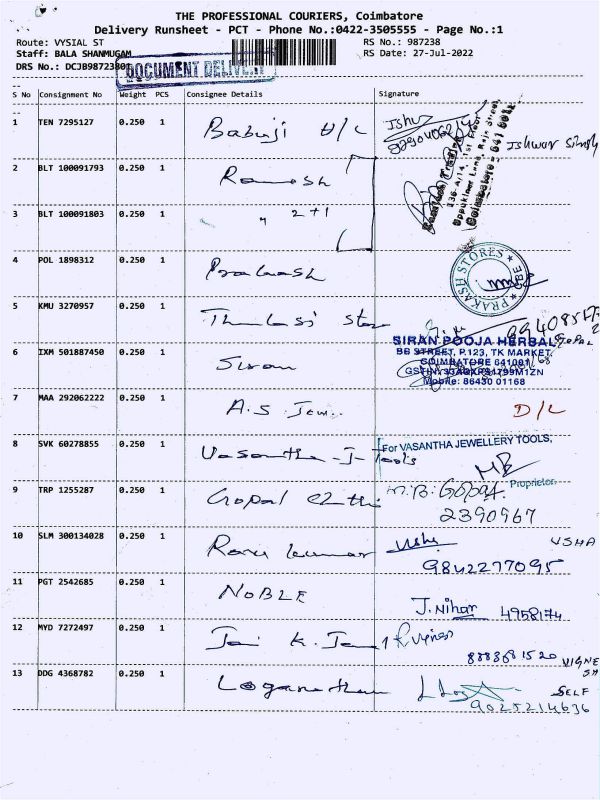 THE PROFESSIONAL COURIERS, Coimbatore
Delivery Runsheet - PCT - Phone No.:0422-3505555 - Page No.:1
Route: VYSIAL ST RS No.: 987238
Staff: BALA SHANMUGAM RS Date: 27-Jul-2022
DRS No.: DCJB98723801
DOCUMENT DELIVERY
S No Consignment No Weight PCS Consignee Details Signature
1 TEN 7295127 0.250 1 Babuji H/C Ishwar Singh
136-A/14, 1st Floor
2 BLT 100091793 0.250 1 Ramesh
3 BLT 100091803 0.250 1 " 2+1
4 POL 1898312 0.250 1 Prakash PRAKASH STORES
5 KMU 3270957 0.250 1 Thulasi Store
SIRAN POOJA HERBAL GOPAL
6 IXM 501887450 0.250 1 Siran
BB STREET, P.123, TK MARKET,
COIMBATORE 641001
Mobile: 86430 01168
7 MAA 292062222 0.250 1 A.S. D/L
8 SVK 60278855 0.250 1 Vasantha-J-Tools For VASANTHA JEWELLERY TOOLS,
Proprietor.
9 TRP 1255287 0.250 1 Gopal M.B. Gopal.
2390967
10 SLM 300134028 0.250 1 Ram kumar Usha USHA
9842277095
11 PGT 2542685 0.250 1 NOBLE J. Nihar 4958174
12 MYD 7272497 0.250 1 Jai K. Jam
8883681520 VIGNESH
13 DDG 4368782 0.250 1 Loganathan SELF
9025214636